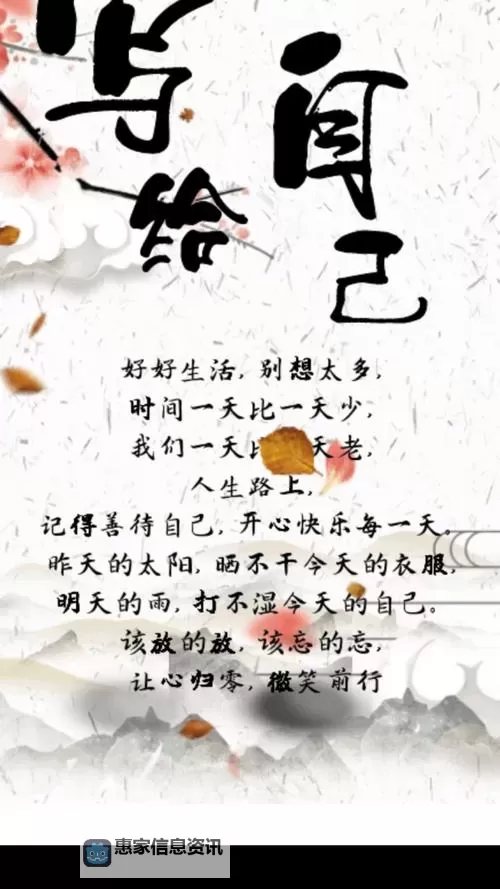 写给
自己
好好生活，别想太多，
时间一天比一天少，
我们一天比天老，
人生路上，
记得善待自己，开心快乐每一天。
昨天的太阳，晒不干今天的衣服，
明天的雨，打不湿今天的自己。
该放的放，该忘的忘，
让心归零，微笑前行
惠家信息资讯